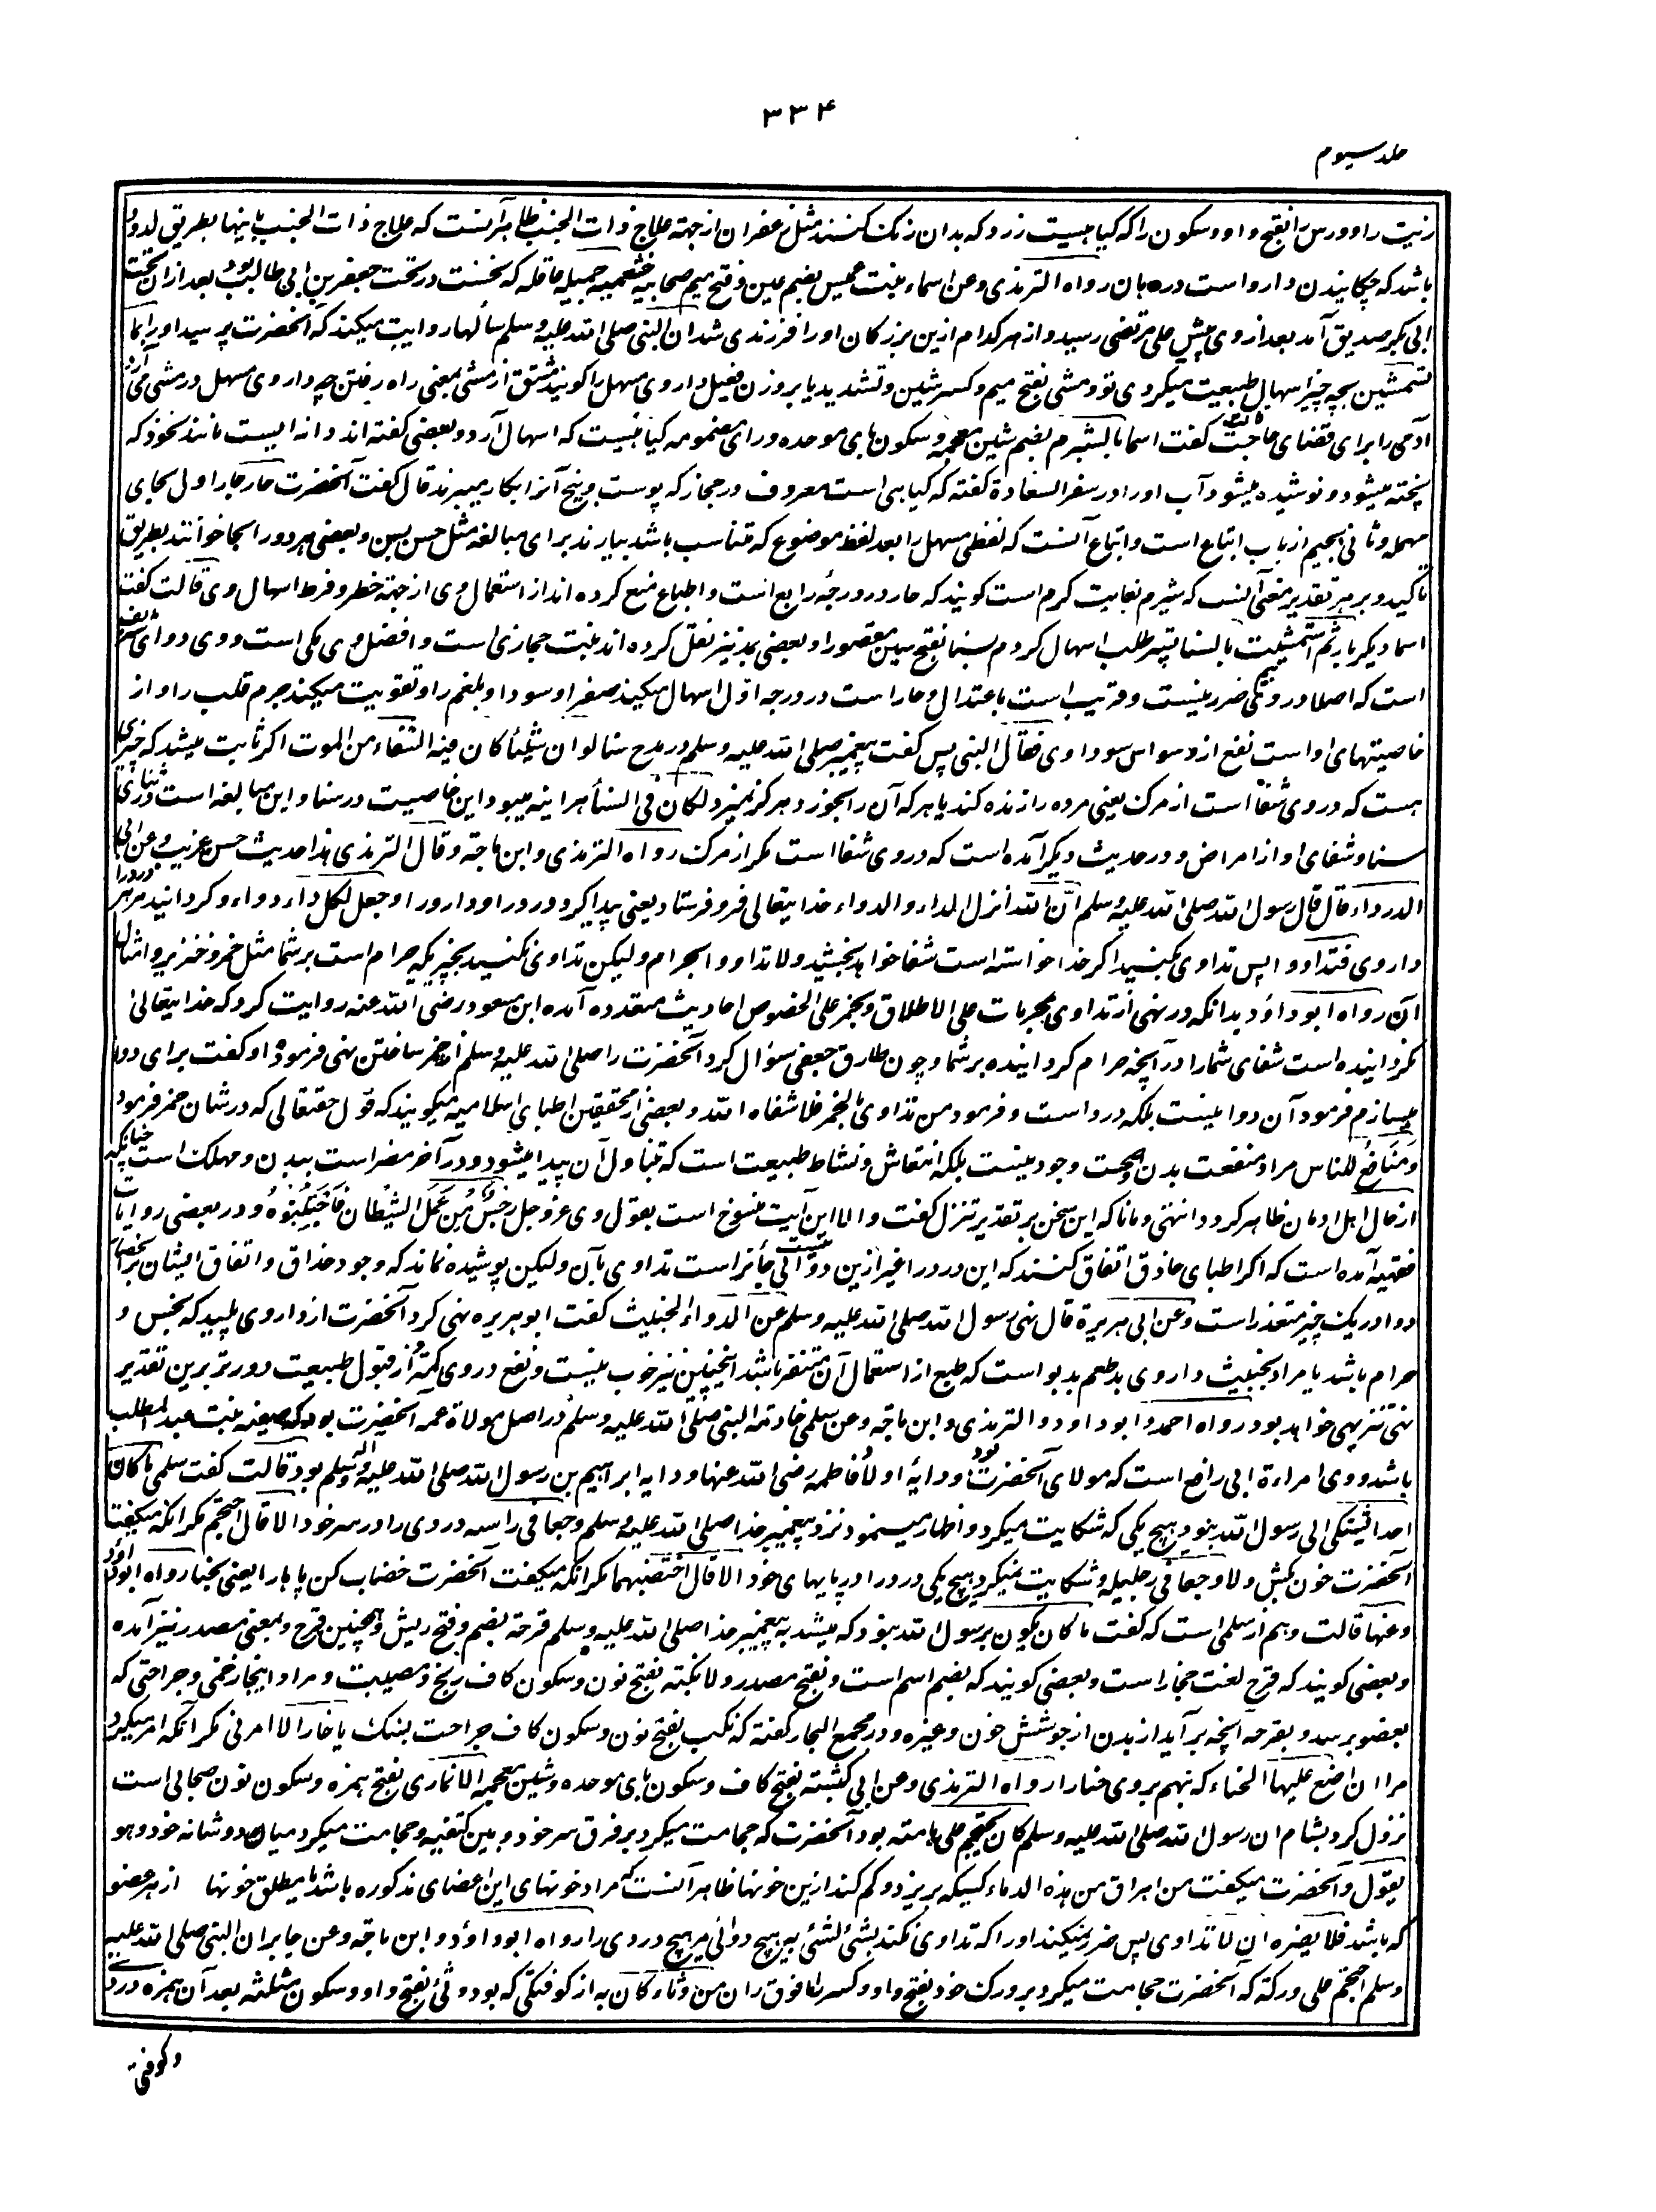 ۳۳۴
جلد سیوم
زیت را و ورس را بفتح واو و سکون را که گیاهیست زرد که بدان رنگ کنند مثل زعفران از جهة علاج ذات الجنب ظاهر آنست که علاج ذات الجنب باینها بطریق لدود
باشد که چکانیدن دارو است در دهان رواه الترمذی وعن اسماء بنت عمیس بضم عین و فتح میم صحابیه خثعمیه جمیله عاقله که نخست در تحت جعفر بن ابی طالب بود بعد ازان تحت
ابی بکر صدیق آمد بعد از وی پیش علی مرتضی رسید و از هر کدام ازین بزرگان او را فرزندی شد ان النبی صلی الله علیه وسلم سألها روایت میکند که آنحضرت پرسید او را بما
تستمشین بچه چیز اسهال طبیعت میکردی تو و مشی بفتح میم و کسر شین و تشدید یا بر وزن فعیل داروی مسهل را گویند مشتق از مشی بمعنی راه رفتن چه داروی مسهل در مشی می آرد
آدمی را برای قضای حاجت قالت گفت اسما بالشبرم بضم شین معجمه و سکون بای موحده و رای مضمومه گیاهیست که اسهال آرد و بعضی گفته اند دانه ایست مانند نخود که
پخته میشود و نوشیده میشود آب او را و در سفر السعادة گفته که گیاهی است معروف در حجاز که پوست و بیخ آنرا بکار میبرند قال گفت آنحضرت حار جار اول بحای
مهمله و ثانی بجیم از باب اتباع است و اتباع آنست که لفظی مهمل را بعد لفظ موضوع که متناسب باشد بیارند برای مبالغه مثل حسن بسن و بعضی هر دو را بحا خوانند بطریق
تاکید و بر هر تقدیر معنی آنست که شبرم بغایت گرم است گویند که حار در درجهٔ رابع است و اطباء منع کرده اند از استعمال وی از جهة خطر و فرط اسهال وی قالت گفت
اسما دیگر بار ثم استمشیت بالسنا پستر طلب اسهال کردم بسنا بفتح سین مقصورا و بعضی بمد نیز نقل کرده اند بنت حجازی است و افضل وی مکی است و وی دوای شریف
است که اصلا در وی هیچ ضرر نیست و قریب است باعتدال و حار است در درجه اول اسهال میکند صفرا و سودا و بلغم را و تقویت میکند جرم قلب را و از
خاصیتهای او است نفع از وسواس سوداوی فقال النبی پس گفت پیغمبر صلی الله علیه وسلم در مدح سنا لو ان شیئا کان فیه الشفاء من الموت اگر ثابت میشد که چیزی
هست که در وی شفا است از مرگ یعنی مرده را زنده کند یا هر که آن را بخورد هرگز نمیرد لکان فی السنا هر اینه میبود این خاصیت در سنا و این مبالغه است در شناسی
سنا و شفای او از امراض و در حدیث دیگر آمده است که در وی شفا است مگر از مرگ رواه الترمذی و ابن ماجة وقال الترمذی هذا حدیث حسن غریب وعن ابی
الدرداء قال قال رسول الله صلی الله علیه وسلم ان الله انزل الداء والدواء خدایتعالی فرو فرستاد یعنی پیدا کرد درد را و دارو را وجعل لکل داء دواء و گردانید مر هر درد را
داروی فتداووا پس تداوی بکنید اگر خدا خواسته است شفا خواهد بخشید ولا تداووا بحرام ولیکن تداوی نکنید بچیزیکه حرام است بر شما مثل خمر و خنزیر و امثال
آن رواه ابو داؤد بدانکه در نهی از تداوی بمحرمات علی الاطلاق و بخمر علی الخصوص احادیث متعدده آمده ابن مسعود رضی الله عنه روایت کرد که خدایتعالی
نگردانیده است شفای شما را در آنچه حرام گردانیده بر شما و چون طارق جعفی سؤال کرد آنحضرت را صلی الله علیه وسلم از خمر ساختن نهی فرمود او گفت برای دوا
میسازم فرمود آن دوا نیست بلکه درد است و فرمود من تداوی بالخمر فلا شفاه الله و بعضی از محققین اطبای اسلامیه میگویند که قول حقتعالی که در شان خمر فرمود
ومنافع للناس مراد منفعت بدن و صحت وجود نیست بلکه انتعاش و نشاط طبیعت است که بتناول آن پیدا میشود و در آخر مضر است ببدن و مهلک است چنانکه
از حال اهل ادمان ظاهر گردد انتهی و مانا که این سخن بر تقدیر تنزل گفت و الا این آیت منسوخ است بقول وی عز و جل رجس من عمل الشیطان فاجتنبوه و در بعضی روایات
فقهیه آمده است که اگر اطبای حاذق اتفاق کنند که این درد را غیر ازین دوائی نیست جائز است تداوی بآن ولیکن پوشیده نماند که وجود حذاق و اتفاق ایشان بر انحصار
دوا در یک چیز متعذر است وعن ابی هریرة قال نهی رسول الله صلی الله علیه وسلم عن الدواء الخبیث گفت ابو هریره نهی کرد آنحضرت از داروی پلید که نجس و
حرام باشد یا مراد بخبیث داروی بدطعم بدبو است که طبع از استعمال آن متنفر باشد اینچنین نیز خوب نیست و نفع در وی کمتر و از قبول طبیعت دورتر برین تقدیر
نهی تنزیهی خواهد بود رواه احمد و ابو داود و الترمذی و ابن ماجه وعن سلمی خادمة النبی صلی الله علیه وسلم در اصل مولاة عمه آنحضرت بود که صفیه بنت عبد المطلب
باشد و وی امراءة ابی رافع است که مولای آنحضرت بود و دایهٔ اولاد فاطمه رضی الله عنها و دایه ابراهیم بن رسول الله صلی الله علیه وآله وسلم بود قالت گفت سلمی ما کان
احد یشتکی الی رسول الله نبود هیچ یکی که شکایت میکرد و اظهار مینمود نزد پیغمبر خدا صلی الله علیه وسلم وجعا فی راسه دردی را در سر خود الا قال احتجم مگر آنکه میگفت
آنحضرت خون بکش ولا وجعا فی رجلیه و شکایت نمیکرد هیچ یکی درد را در پایهای خود الا قال اختضبهما مگر آنکه میگفت آنحضرت خضاب کن پایها را یعنی بحنا رواه ابو داؤد
وعنها قالت و هم از سلمی است که گفت ما کان یکون برسول الله نبود که میشد به پیغمبر خدا صلی الله علیه وسلم قرحة بضم و فتح ریش و همچنین قرح و بمعنی مصدر نیز آمده
و بعضی گویند که قرح لغت حجاز است و بعضی گویند که بضم اسم است و بفتح مصدر ولا نکبة بفتح نون و سکون کاف رنج و مصیبت و مراد اینجا زخمی و جراحتی که
بعضو برسد و بقرحه آنچه برآید از بدن از جوشش خون و غیره و در مجمع البحار گفته که نکب بفتح نون و سکون کاف جراحت بسنگ یا خار الا امرنی مگر آنکه امر میکرد
مرا ان اضع علیها الحناء که بنهم بر وی حنا را رواه الترمذی وعن ابی کبشة بفتح کاف و سکون بای موحده و شین معجمه الانماری بفتح همزه و سکون نون صحابی است
نزول کرد بشام ان رسول الله صلی الله علیه وسلم کان یحتجم علی هامته بود آنحضرت که حجامت میکرد بر فرق سر خود و بین کتفیه و حجامت میکرد میان دو شانه خود وهو
یقول و آنحضرت میگفت من اهراق من هذه الدماء کسیکه بریزد و کم کند ازین خونها ظاهر آنست که مراد خونهای این اعضای مذکوره باشد یا مطلق خونها از هر عضو
که باشد فلا یضره ان لا یتداوی پس ضرر نمیکند او را که تداوی نکند بشئ لشئ به هیچ دوائی مر هیچ دردی را رواه ابو داؤد و ابن ماجه وعن جابر ان النبی صلی الله علیه
وسلم احتجم علی ورکه که آنحضرت حجامت میکرد بر ورک خود بفتح واو و کسر را فوق ران من وثاء کان به از کوفتگی که بود وثئ بفتح واو و سکون مثلثه بعد آن همزه درد
و کوفتی